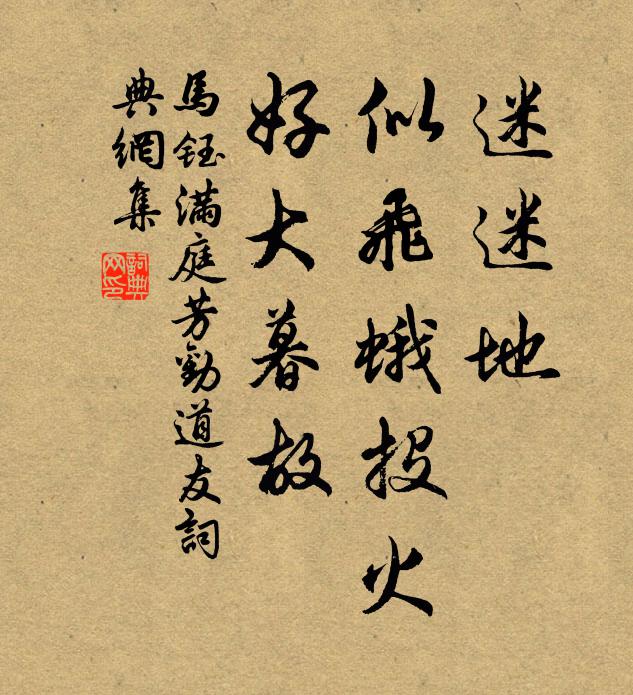 迷迷地
似飛蛾投火
好大暮故
馬鈺满庭芳勸道友詞
典網集
詞典網印